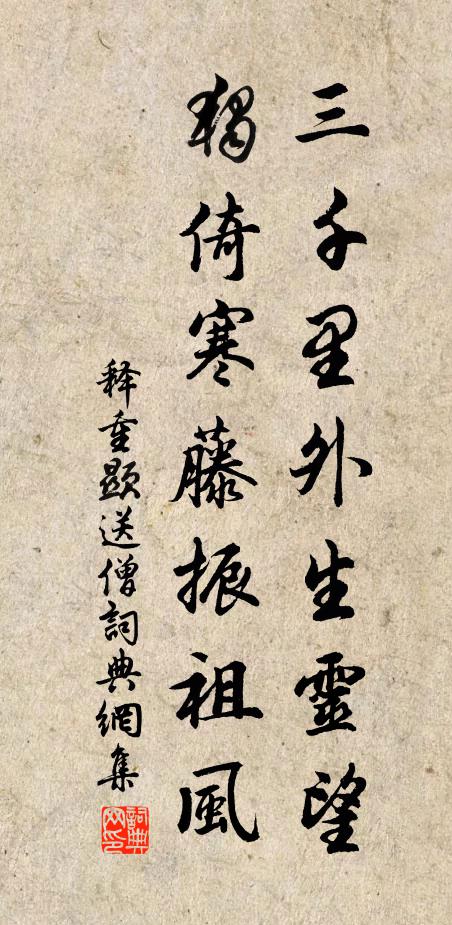 三千里外生靈望
獨倚寒藤振祖風
释重顯送僧詞典網集
詞典网印